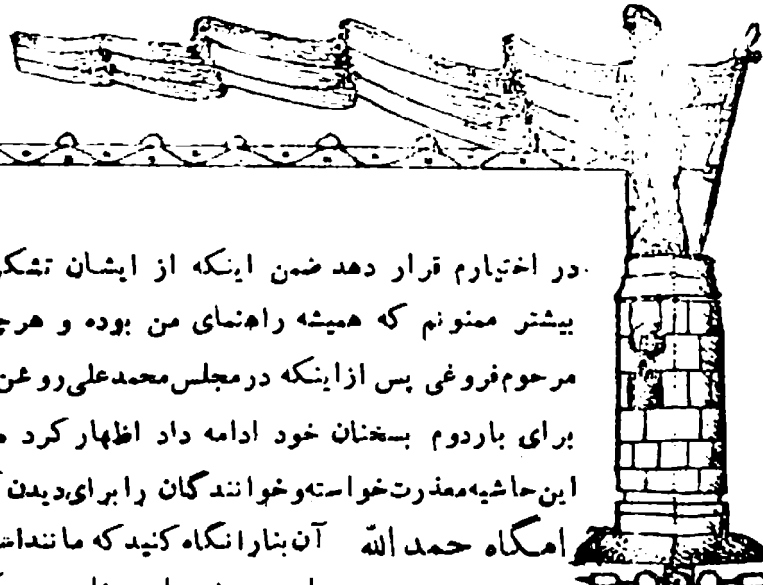 در اختیارم قرار دهد ضمن اینکه از ایشان تشکر
بیشتر ممنونم که همیشه راهنمای من بوده و هرچ
مرحوم فروغی پس از اینکه در مجلس محمدعلی روغن
برای باردوم بسخنان خود ادامه داد اظهار کرد
این حاشیه معذرت خواسته و خوانندگان را برای دیدن
آرامگاه حمدالله آن بنا را نگاه کنید که مانند